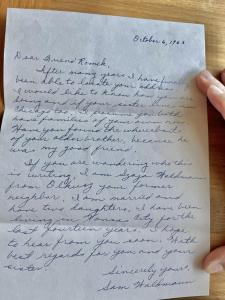 October 6, 1963
Dear Friend Romek,
After many years I have finally
been able to locate your address.
I would like to know how you are
doing and if your sister lives in
Chicago too. I assume you both
have families of your own now.
Have you found the whereabouts
of your older brother, because he
was my good friend.
If you are wondering who this
is writing, I am Szaja Waldman
from Olkusz your former
neighbor. I am married and
have two daughters. I have been
living in Kansas City for the
last fourteen years. I hope
to hear from you soon. With
best regards for you and your
sister.
Sincerely yours,
Sam Waldmann